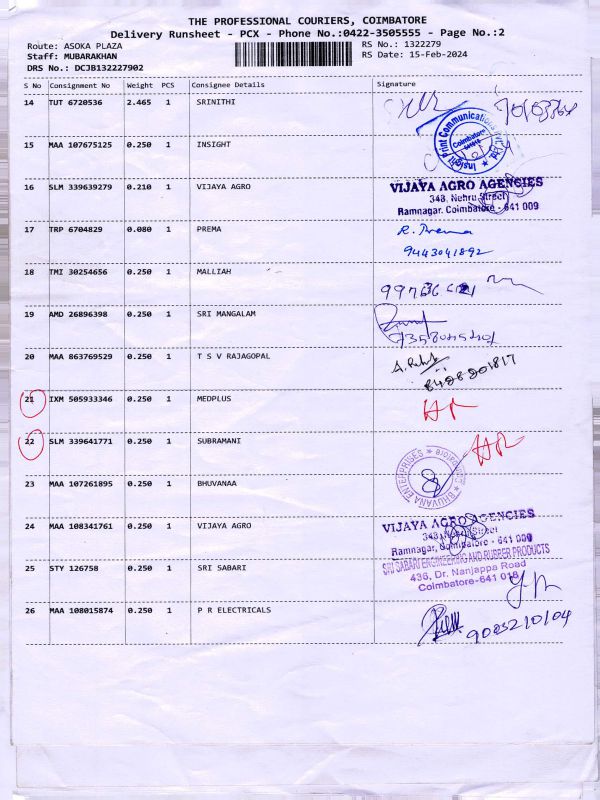 THE PROFESSIONAL COURIERS, COIMBATORE
Delivery Runsheet - PCX - Phone No.:0422-3505555 - Page No.:2
Route: ASOKA PLAZA
Staff: MUBARAKHAN
DRS No.: DCJB132227902
RS No.: 1322279
RS Date: 15-Feb-2024
S No Consignment No Weight PCS Consignee Details Signature
14 TUT 6720536 2.465 1 SRINITHI
15 MAA 107675125 0.250 1 INSIGHT
Insight Print Communications
Coimbatore
16 SLM 339639279 0.210 1 VIJAYA AGRO
VIJAYA AGRO AGENCIES
343, Nehru Street
Ramnagar, Coimbatore - 641 009
17 TRP 6704829 0.080 1 PREMA
R. Prema
9443041892
18 TMI 30254656 0.250 1 MALLIAH
19 AMD 26896398 0.250 1 SRI MANGALAM
20 MAA 863769529 0.250 1 T S V RAJAGOPAL
21 IXM 505933346 0.250 1 MEDPLUS
22 SLM 339641771 0.250 1 SUBRAMANI
23 MAA 107261895 0.250 1 BHUVANAA
BHUVANA ENTERPRISES
24 MAA 108341761 0.250 1 VIJAYA AGRO
VIJAYA AGRO AGENCIES
343, Nehru Street
Ramnagar, Coimbatore - 641 009
25 STY 126758 0.250 1 SRI SABARI
SRI SABARI ENGINEERING AND RUBBER PRODUCTS
436, Dr. Nanjappa Road
Coimbatore-641 018
26 MAA 108015874 0.250 1 P R ELECTRICALS